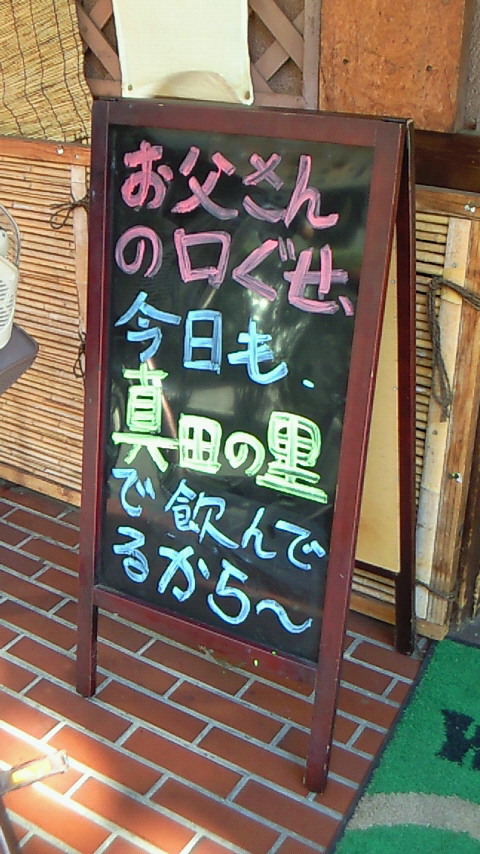 お父さん
の口ぐせ、
今日も、
真田の里
で飲んで
るから〜